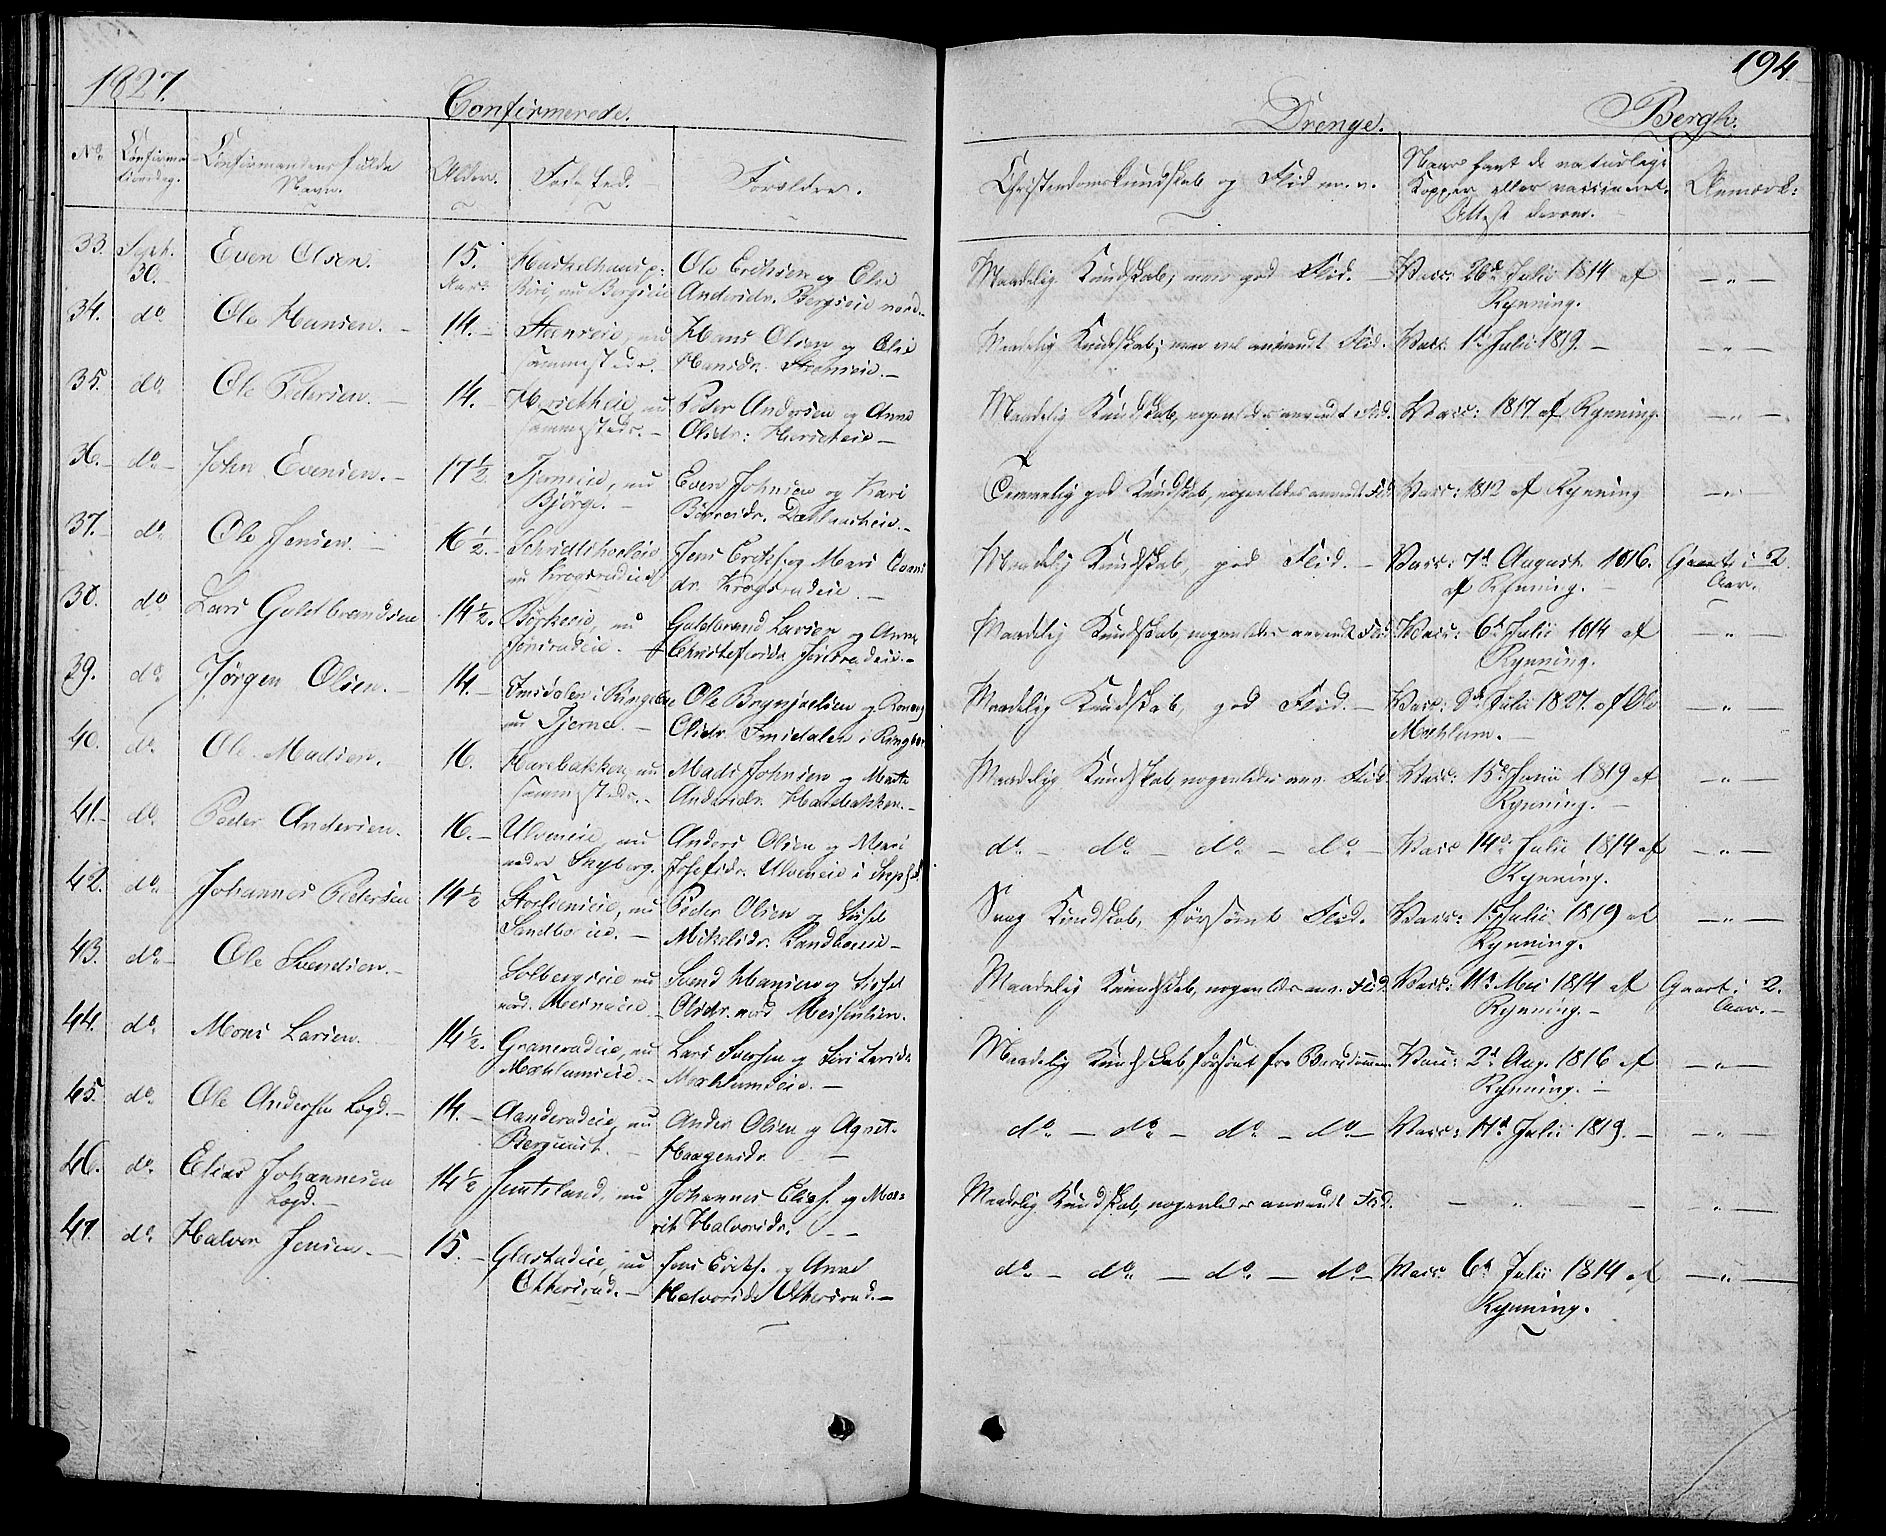 1827.
194
Confirmerede.
Drenge.
Bergh:
No.
Confirma-
tionsdag.
Confirmandens fulde
Navn.
Alder.
Fødested.
Forældre.
Christendomskundskab og Flid m. v.
Naar havt de naturlige
Kopper eller vaccineret.
Attest derom.
Anmærk:
33. Sept. 30. Even Olsen. 15. Aar.
Biri, nu Bergseie
Ole Erichsen og Eli
Andersdr. Bergseie nord.
Maadelig Kundskab, men god Flid. Vacc: 26d Julii 1814 af
Rynning.
34. do. Ole Hansen. 14. Steenseie, nu
sammesteds.
Hans Olsen og Eli
Hansdr. Steenseie.
Maadelig Kundskab; men vel anvendt Flid. Vacc: 1d Julii 1819.
35. do. Ole Pedersen. 14. nu
sammesteds.
Peder Andersen og Anne
Olsdr:
Maadelig Kundskab, nogenledes anvendt Flid. Vacc: 1817 af Rynning.
36. do. John Evensen. 17 1/2. Tjerneie, nu
Bjørge.
Even Johnsen og Kari
Temmelig god Kundskab, nogenledes anvendt Flid Vacc: 1812 af Rynning
37. do. Ole Jensen. 16 1/2.
nu Krogsrudeie
Jens Erichs. og Mari Evens
dr. Krogsrudeie.
Maadelig Kundskab, god Flid. Vacc: 7d August 1816. Gaaet i 2
af Rynning. Aar.
38. do. Lars Guldbrandsen 14 1/2. nu
Guldbrand Larsen og Anne
Maadelig Kundskab, nogenledes anvendt Flid Vacc: 6d Julii 1814 af
Rynning.
39. do. Jørgen Olsen. 14. Imsdalen i Ringeboe
nu Tjerne.
Ole Brynjulsen og
Olsdr. Imsdalen i Ringeboe
Maadelig Kundskab, god Flid. Vacc: 2d Julii 1827 af Ole
Mæhlum.
40. do. Ole Madsen. 16. Harebakken, nu
sammesteds.
Mads Johnsen og Marte
Andersdr. Harebakken.
Maadelig Kundskab, nogenledes anv. Flid Vacc: 15d Junii 1819 af
Rynning.
41. do. Peder Andersen. 16. Ulveneie, nu
nedre Skyberg.
Anders Olsen og Mari
Josefsdr. Ulveneie i
do. do. do. do. Vacc: 14d Julii 1814 af
Rynning.
42. do. Johannes Pedersen 14 1/2 nu
Peder Olsen og Sidsel
Mikelsdr.
Svag Kundskab, forsømt Flid. Vacc: 1d Julii 1819 af
Rynning.
43. do. Ole Svendsen. Solbergseie nu
Svend Hansen og Sidsel
Olsdr. nord
Maadelig Kundskab, nogenledes anv. Flid Vacc: 11d Mai 1814 af Gaaet i 2.
Rynning. Aar.
44. do. Mons Larsen. 14 1/2. Granerudeie, nu
Mæhlumseie.
Lars Iversen og Siri Larsdr
Mæhlumseie.
Maadelig Kundskab, forsømt fra Barndommen Vacc: 2d Aug. 1816 af
Rynning.
45. do. Ole Andersen Lægd. 14. Aanderudeie, nu
Bergundt.
Anders Olsen og Agnete
Haagensdr.
do. do. do. do. Vacc: 11d Julii 1819.
46. do. Elias Johannesen
Lægd. 14 1/2 nu
Johannes Elias. og Ma-
rit Halvorsdr.
Maadelig Kundskab, nogenledes anvendt Flid.
47. do. Halvor Jensen. 15. Glæstadeie, nu
Ottersrud.
Jens Erichs. og Anne
Halvorsdr Ottersrud.
do. do. do. do. Vacc: 6d Julii 1814 af
Rynning.